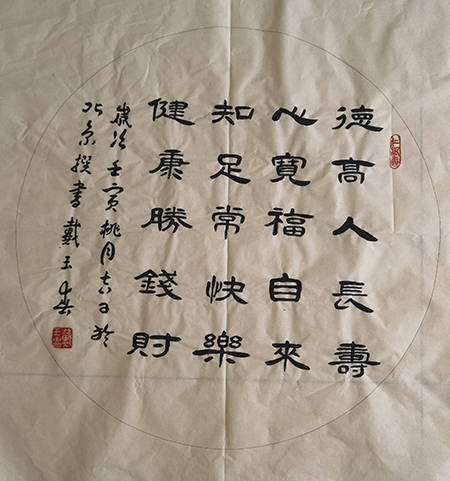 德高人長壽
心寬福自來
知足常快樂
健康勝錢財
歲次壬寅桃月吉日於
北京撰書戴玉春